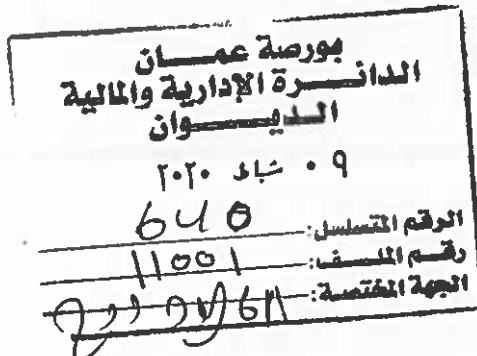 بورصة عمـــان
الدائــــرة الإدارية والمالية
الديـــوان
٠٩ شباط ٢٠٢٠
الرقم المتسلسل: 640
رقم الملف: 11001
الجهة المختصة: